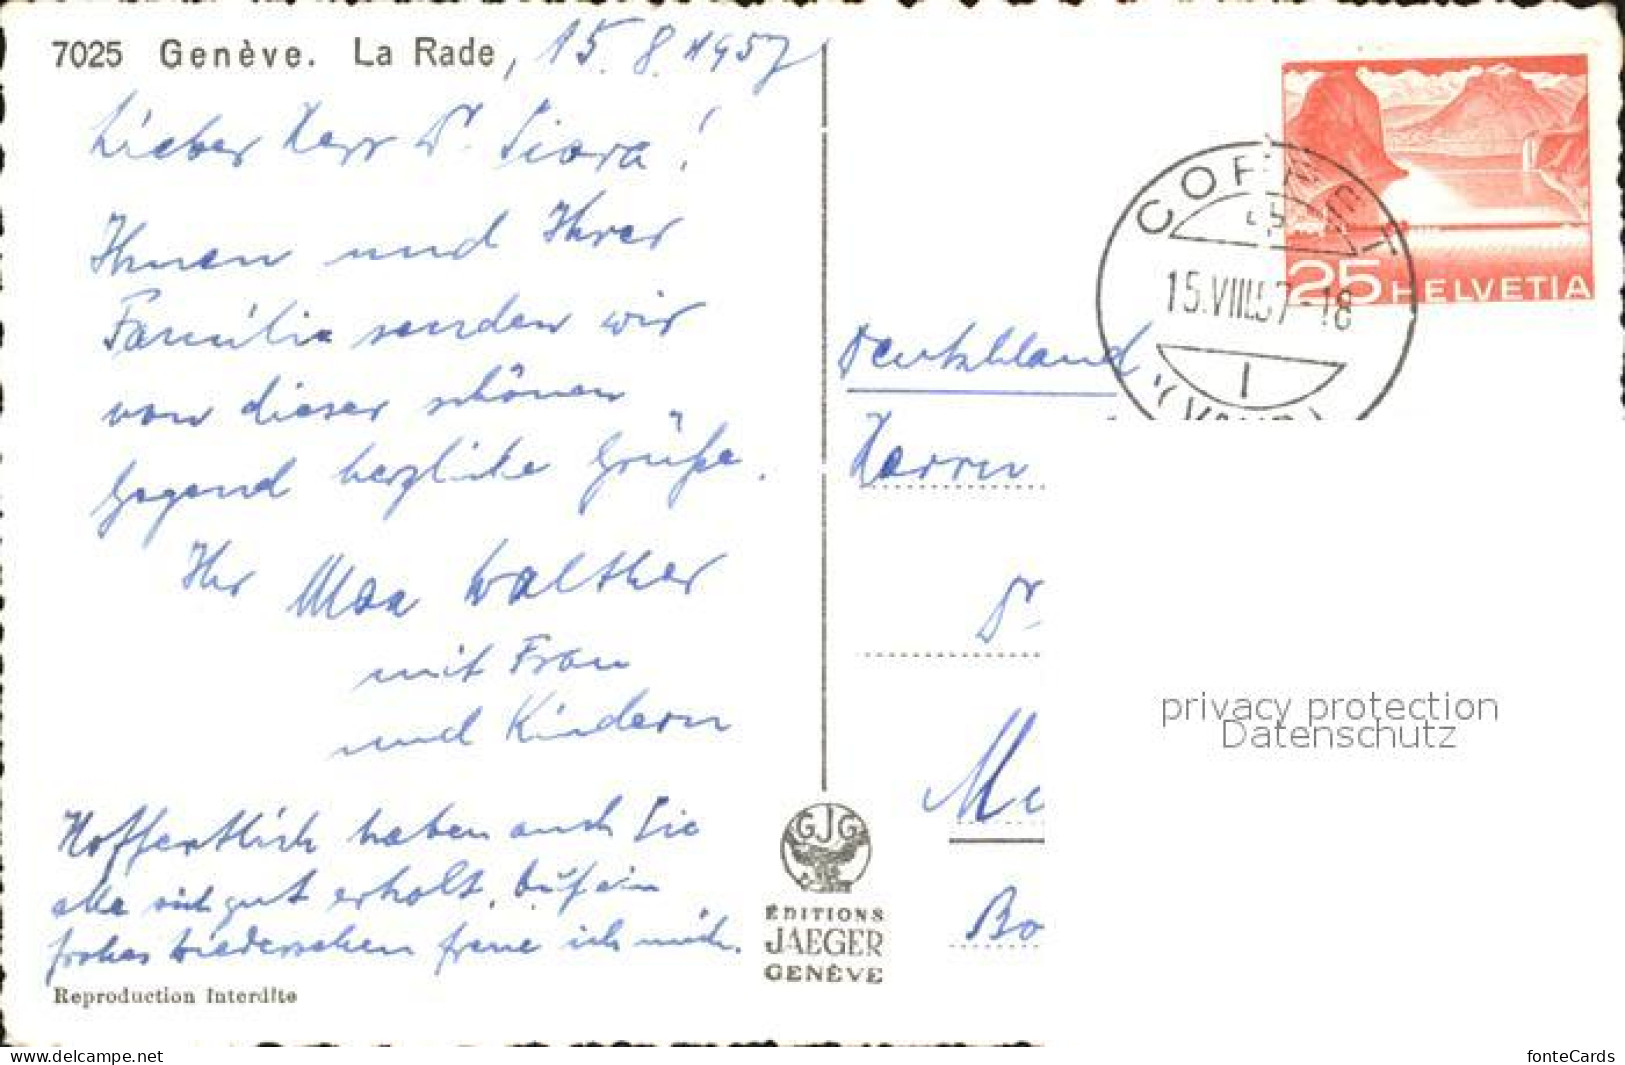 7025 Genève. La Rade, 15.8.1957
Lieber Herr Dr. Siara!
Ihnen und Ihrer
Familie senden wir
von dieser schönen
Gegend herzliche Grüße.
Ihr Max Walther
mit Frau
und Kindern
Hoffentlich haben auch Sie
alle sich gut erholt. Auf ein
frohes Wiedersehen freue ich mich.
Reproduction Interdite
GJG
ÉDITIONS
JAEGER
GENÈVE
25 HELVETIA
COPPET
15.VIII.57-18
(VAUD)
Deutschland
Herrn
Dr.
privacy protection
Datenschutz
www.delcampe.net
fonteCards